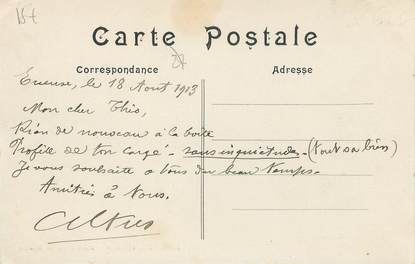 15€
Carte Postale
Correspondance
Adresse
le 18 Aout 1913
Mon cher Théo,
Rien de nouveau à la boite
Profite de ton congé - sans inquiétudes - (tout va bien)
Je vous souhaite a tous du beau temps.
Amitiés à Vous.